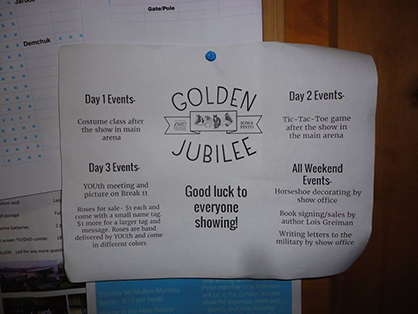 Gate/Pole
Demchuk
GOLDEN
IOWA
PINTO
JUBILEE
Good luck to
everyone
showing!
Day 1 Events-
Costume class after
the show in main
arena
Day 2 Events-
Tic-Tac-Toe game
after the show in
the main arena
Day 3 Events-
YOUth meeting and
picture on Break 11
Roses for sale- $1 each and
come with a small name tag.
$1 more for a larger tag and
message. Roses are hand
delivered by YOUth and come
in different colors
All Weekend
Events-
Horseshoe decorating by
show office
Book signing/sales by
author Lois Greiman
Writing letters to the
military by show office